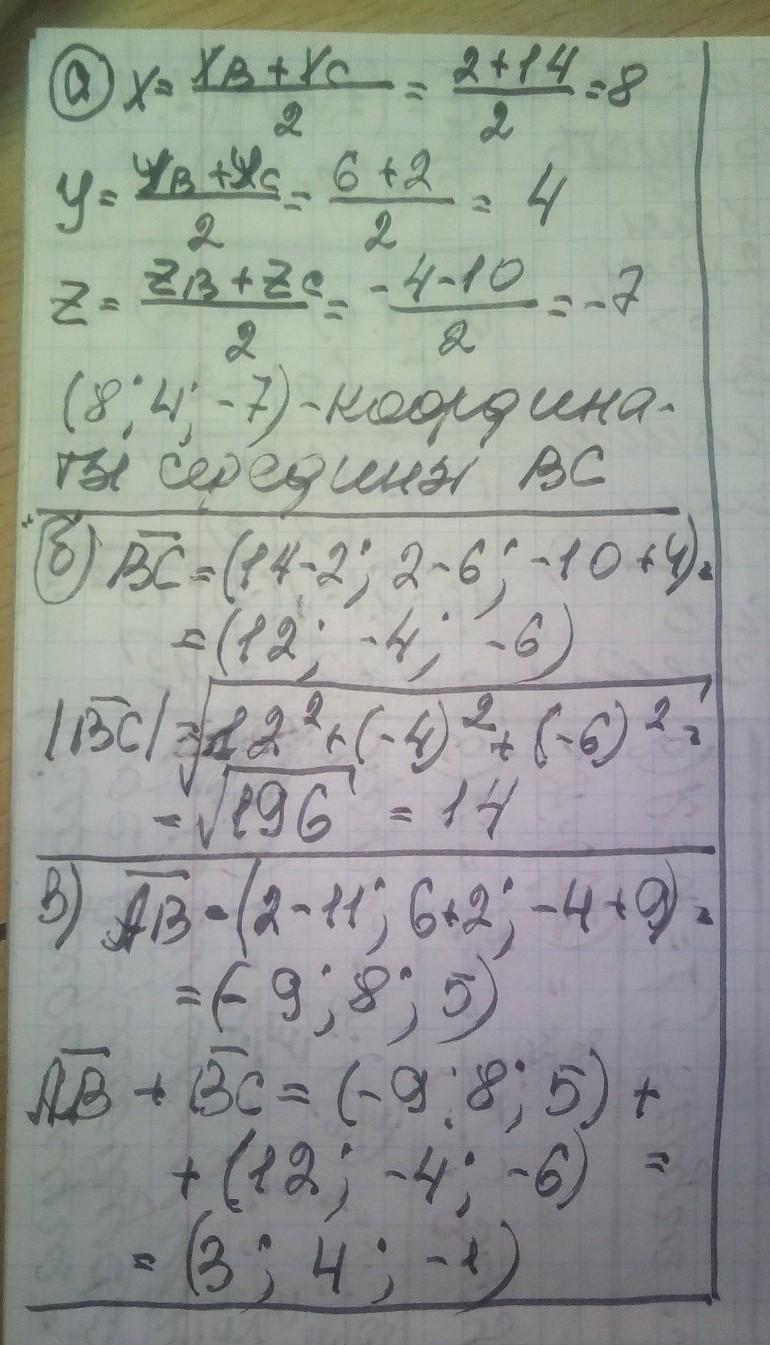 а) x = (xB + xC)/2 = (2+14)/2 = 8
y = (yB + yC)/2 = (6+2)/2 = 4
z = (zB + zC)/2 = (-4-10)/2 = -7
(8; 4; -7) - координа-
ты середины BC
б) B̅C̅ = (14-2; 2-6; -10+4) =
= (12; -4; -6)
|B̅C̅| = √(12² + (-4)² + (-6)²) =
= √196 = 14
в) A̅B̅ = (2-11; 6+2; -4+9) =
= (-9; 8; 5)
A̅B̅ + B̅C̅ = (-9; 8; 5) +
+ (12; -4; -6) =
= (3; 4; -1)